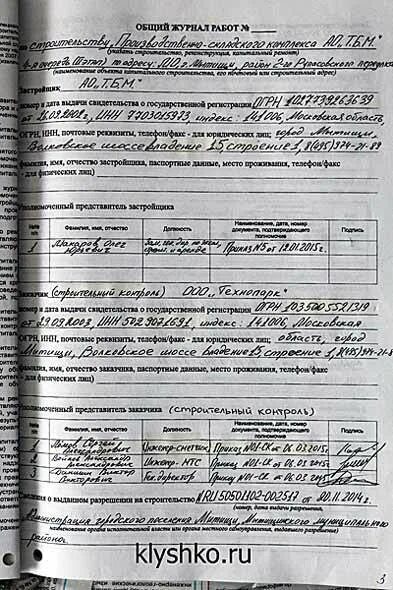 ОБЩИЙ ЖУРНАЛ РАБОТ №
по строительству, Производственно-складского комплекса АО„Т.Б.М."
(указать строительство, реконструкция, капитальный ремонт)
по адресу: М.О., г. Мытищи, район 2-го
(наименование объекта капитального строительства, его почтовый или строительный адрес)
Застройщик АО„Т.Б.М."
номер и дата выдачи свидетельства о государственной регистрации ОГРН 1027739263639
от 26.09.2002г, ИНН 7703015973, индекс: 141006, Московская область,
ОГРН, ИНН, почтовые реквизиты, телефон/факс - для юридических лиц) город Мытищи,
Волковское шоссе владение 15 строение 1, 8(495)974-21-89
фамилия, имя, отчество застройщика, паспортные данные, место проживания, телефон/факс
- для физических лиц)
Уполномоченный представитель застройщика
№№ п/п
Фамилия, имя, отчество
Должность
Наименование, дата, номер документа, подтверждающего полномочие
Подпись
1 Макаров Олег Юрьевич
Приказ №5 от 12.01.2015г.
Заказчик (строительный контроль) ООО „Технопарк"
номер и дата выдачи свидетельства о государственной регистрации ОГРН 1035005521319
от 29.09.2003, ИНН 5029071591, индекс: 141006, Московская
ОГРН, ИНН, почтовые реквизиты, телефон/факс - для юридических лиц) область, город
Мытищи, Волковское шоссе владение 15 строение 1, 8(495)974-21-8
фамилия, имя, отчество заказчика, паспортные данные, место проживания, телефон/факс
- для физических лиц)
Уполномоченный представитель заказчика (строительный контроль)
№№ п/п
Фамилия, имя, отчество
Должность
Наименование, дата, номер документа, подтверждающего полномочие
Подпись
1 Сергей Александрович Инженер-сметчик Приказ №01-СК от 06.03.2015г.
2 Александр Инженер ПТС Приказ №01-СК от 06.03.2015г.
3 Виктор Викторович Тех.директор Приказ №01-СК от 06.03.2015г.
Сведения о выданном разрешении на строительство №RU50501102-002511 от 20.11.2014г.
(номер, дата выдачи разрешения,
Администрация городского поселения Мытищи, Мытищинского муниципального
наименование органа исполнительной власти или органа местного самоуправления, выдавшего разрешение)
района.
klyshko.ru
3